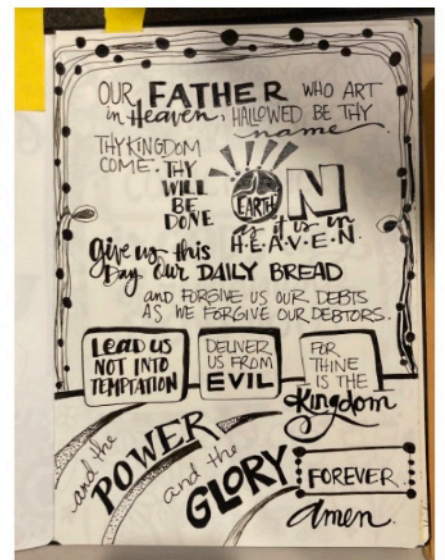 OUR FATHER WHO ART
in Heaven, HALLOWED BE THY
name.
THY KINGDOM
COME. THY
WILL
BE
DONE
ON
EARTH
as it is in
H·E·A·V·E·N.
Give us this
Day Our DAILY BREAD
AND FORGIVE US OUR DEBTS
AS WE FORGIVE OUR DEBTORS.
LEAD US
NOT INTO
TEMPTATION
DELIVER
US FROM
EVIL
FOR
THINE
IS THE
Kingdom
and the
POWER
and the
GLORY
FOREVER.
amen.